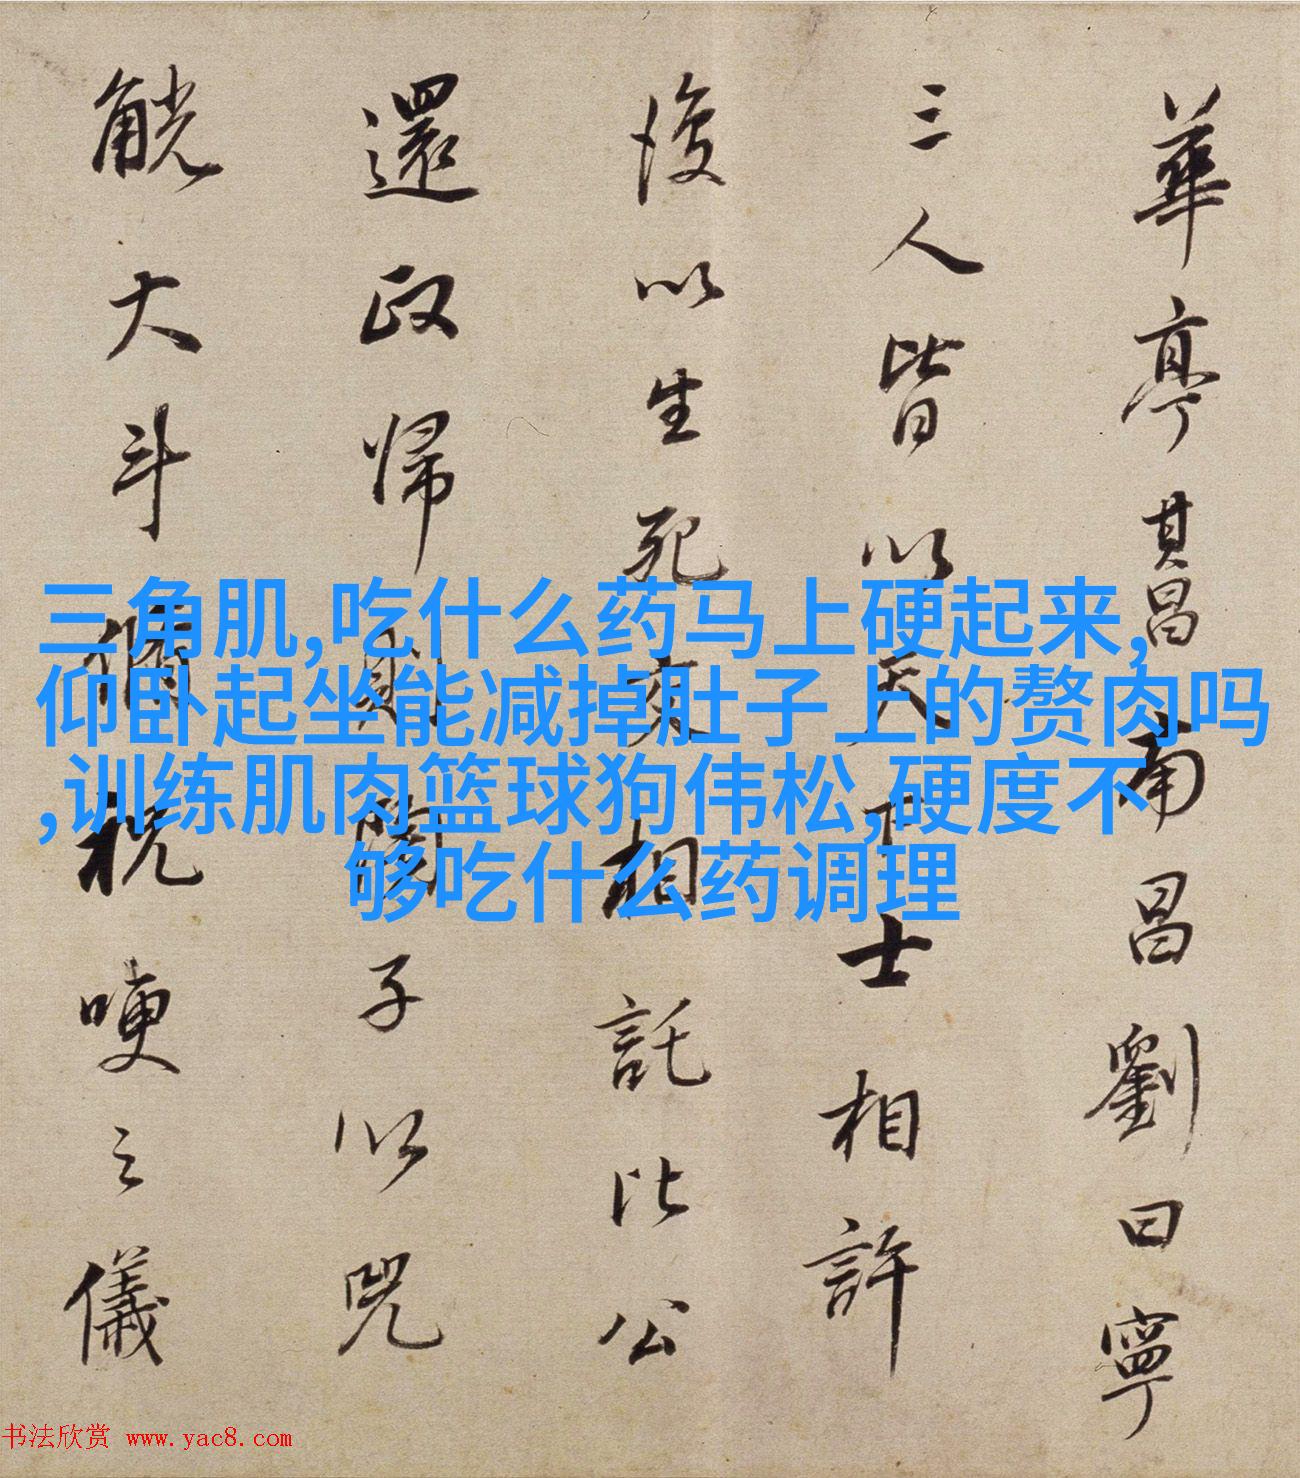 華亭其昌南昌劉曰寧
三人皆以天下士相許
後以生死交相託比公
還政歸則閣子以兕
觥大斗備祝哽之儀
三角肌,吃什么药马上硬起来,
仰卧起坐能减掉肚子上的赘肉吗
,训练肌肉篮球狗伟松,硬度不
够吃什么药调理
书法欣赏 www.yac8.com